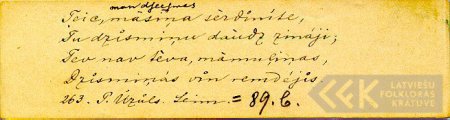 man dziesmas
Teic, māsiņa sērdiniņe,
Tu dziesmiņu daudz zināji;
Tev nav tēva, māmuliņas,
Dziesmiņas vin remdējis.
263. P. Ūzuls. Leim. = 89. C.
LATVIEŠU
FOLKLORAS
KRĀTUVE